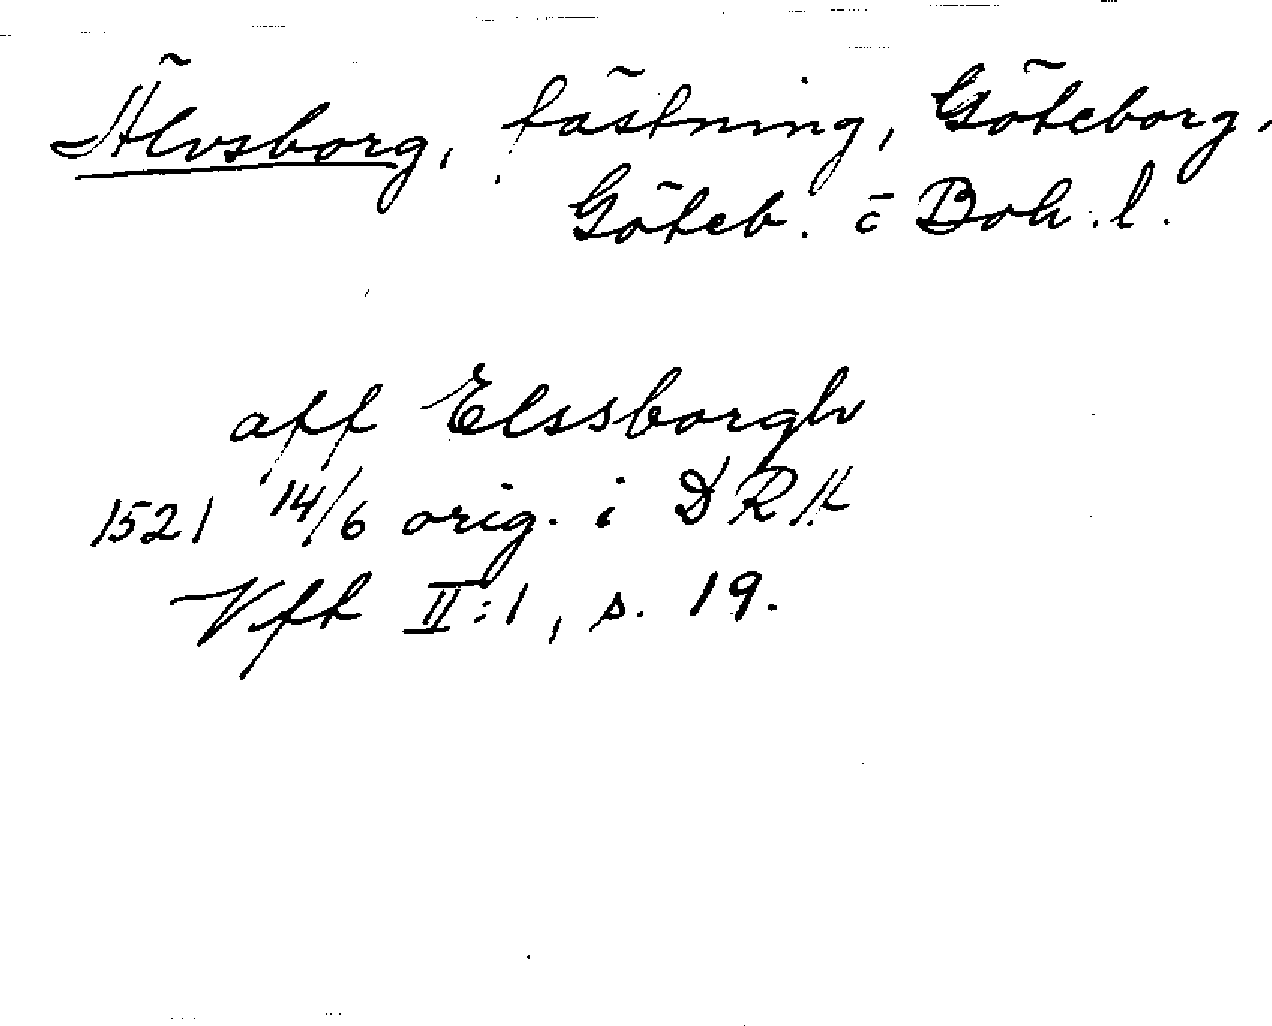 Älvsborg, fästning, Göteborg,
Göteb. o Boh. l.
aff Elssborgh
1521 14/6 orig. i DRA
Vft II:1, s. 19.